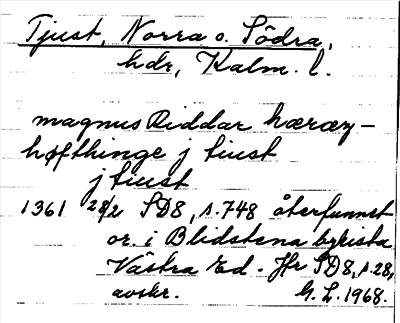 Tjust, Norra o. Södra,
hdr, Kalm. l.
magnus Riddar hæræz-
høfthinge j tiust
j tiust
1361 28/2 SD8, s.748 återfunnet
or. i Blidstena bykista
Västra Ed. Jfr SD8, s.28,
avskr. G. L. 1968.